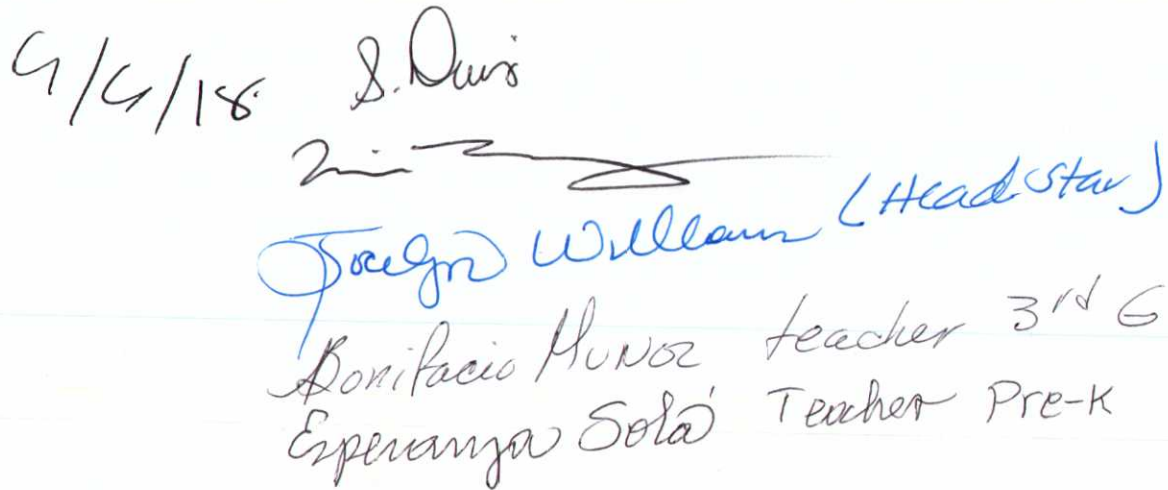 4/4/18 S. Davis
Jocelyn Williams (Head Star)
Bonifacio Munoz teacher 3rd G
Esperanza Solá Teacher Pre-K